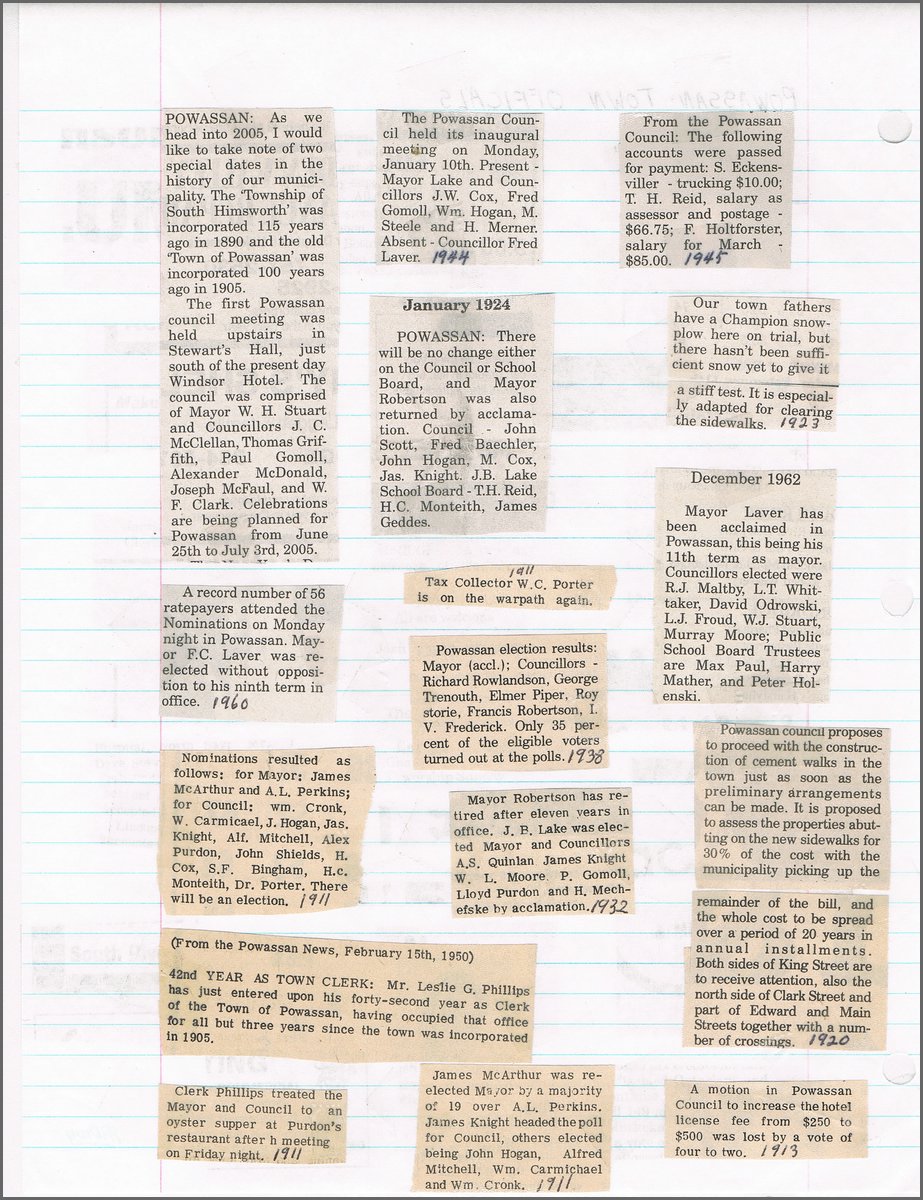 POWASSAN: As we
head into 2005, I would
like to take note of two
special dates in the
history of our munici-
pality. The ‘Township of
South Himsworth’ was
incorporated 115 years
ago in 1890 and the old
‘Town of Powassan’ was
incorporated 100 years
ago in 1905.
The first Powassan
council meeting was
held upstairs in
Stewart’s Hall, just
south of the present day
Windsor Hotel. The
council was comprised
of Mayor W. H. Stuart
and Councillors J. C.
McClellan, Thomas Grif-
fith, Paul Gomoll,
Alexander McDonald,
Joseph McFaul, and W.
F. Clark. Celebrations
are being planned for
Powassan from June
25th to July 3rd, 2005.
A record number of 56
ratepayers attended the
Nominations on Monday
night in Powassan. May-
or F.C. Laver was re-
elected without opposi-
tion to his ninth term in
office. 1960
Nominations resulted as
follows: for Mayor: James
McArthur and A.L. Perkins;
for Council: wm. Cronk,
W. Carmicael, J. Hogan, Jas.
Knight, Alf. Mitchell, Alex
Purdon, John Shields, H.
Cox, S.F. Bingham, H.c.
Monteith, Dr. Porter. There
will be an election. 1911
(From the Powassan News, February 15th, 1950)
42nd YEAR AS TOWN CLERK: Mr. Leslie G. Phillips
has just entered upon his forty-second year as Clerk
of the Town of Powassan, having occupied that office
for all but three years since the town was incorporated
in 1905.
Clerk Phillips treated the
Mayor and Council to an
oyster supper at Purdon's
restaurant after h meeting
on Friday night. 1911
The Powassan Coun-
cil held its inaugural
meeting on Monday,
January 10th. Present -
Mayor Lake and Coun-
cillors J.W. Cox, Fred
Gomoll, Wm. Hogan, M.
Steele and H. Merner.
Absent - Councillor Fred
Laver. 1944
January 1924
POWASSAN: There
will be no change either
on the Council or School
Board, and Mayor
Robertson was also
returned by acclama-
tion. Council - John
Scott, Fred Baechler,
John Hogan, M. Cox,
Jas. Knight. J.B. Lake
School Board - T.H. Reid,
H.C. Monteith, James
Geddes.
1911
Tax Collector W.C. Porter
is on the warpath again.
Powassan election results:
Mayor (accl.); Councillors -
Richard Rowlandson, George
Trenouth, Elmer Piper, Roy
storie, Francis Robertson, I.
V. Frederick. Only 35 per-
cent of the eligible voters
turned out at the polls. 1938
Mayor Robertson has re-
tired after eleven years in
office. J. B. Lake was elec-
ted Mayor and Councillors
A.S. Quinlan James Knight
W. L. Moore. P. Gomoll,
Lloyd Purdon and H. Mech-
efske by acclamation. 1932
James McArthur was re-
elected Mayor by a majority
of 19 over A.L. Perkins.
James Knight headed the poll
for Council, others elected
being John Hogan, Alfred
Mitchell, Wm. Carmichael
and Wm. Cronk. 1911
From the Powassan
Council: The following
accounts were passed
for payment: S. Eckens-
viller - trucking $10.00;
T. H. Reid, salary as
assessor and postage -
$66.75; F. Holtforster,
salary for March -
$85.00. 1945
Our town fathers
have a Champion snow-
plow here on trial, but
there hasn't been suffi-
cient snow yet to give it
a stiff test. It is especial-
ly adapted for clearing
the sidewalks. 1923
December 1962
Mayor Laver has
been acclaimed in
Powassan, this being his
11th term as mayor.
Councillors elected were
R.J. Maltby, L.T. Whit-
taker, David Odrowski,
L.J. Froud, W.J. Stuart,
Murray Moore; Public
School Board Trustees
are Max Paul, Harry
Mather, and Peter Hol-
enski.
Powassan council proposes
to proceed with the construc-
tion of cement walks in the
town just as soon as the
preliminary arrangements
can be made. It is proposed
to assess the properties abut-
ting on the new sidewalks for
30% of the cost with the
municipality picking up the
remainder of the bill, and
the whole cost to be spread
over a period of 20 years in
annual installments.
Both sides of King Street are
to receive attention, also the
north side of Clark Street and
part of Edward and Main
Streets together with a num-
ber of crossings. 1920
A motion in Powassan
Council to increase the hotel
license fee from $250 to
$500 was lost by a vote of
four to two. 1913